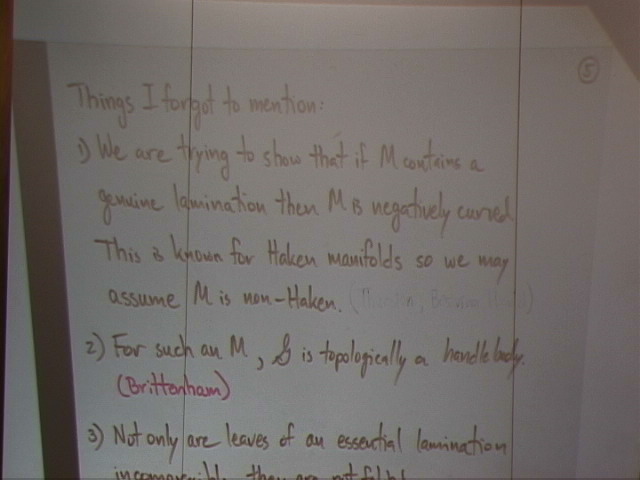 5
Things I forgot to mention:
1) We are trying to show that if M contains a
genuine lamination then M is negatively curved
This is known for Haken manifolds so we may
assume M is non-Haken.
2) For such an M, is topologically a handlebody.
(Brittenham)
3) Not only are leaves of an essential lamination
they are not